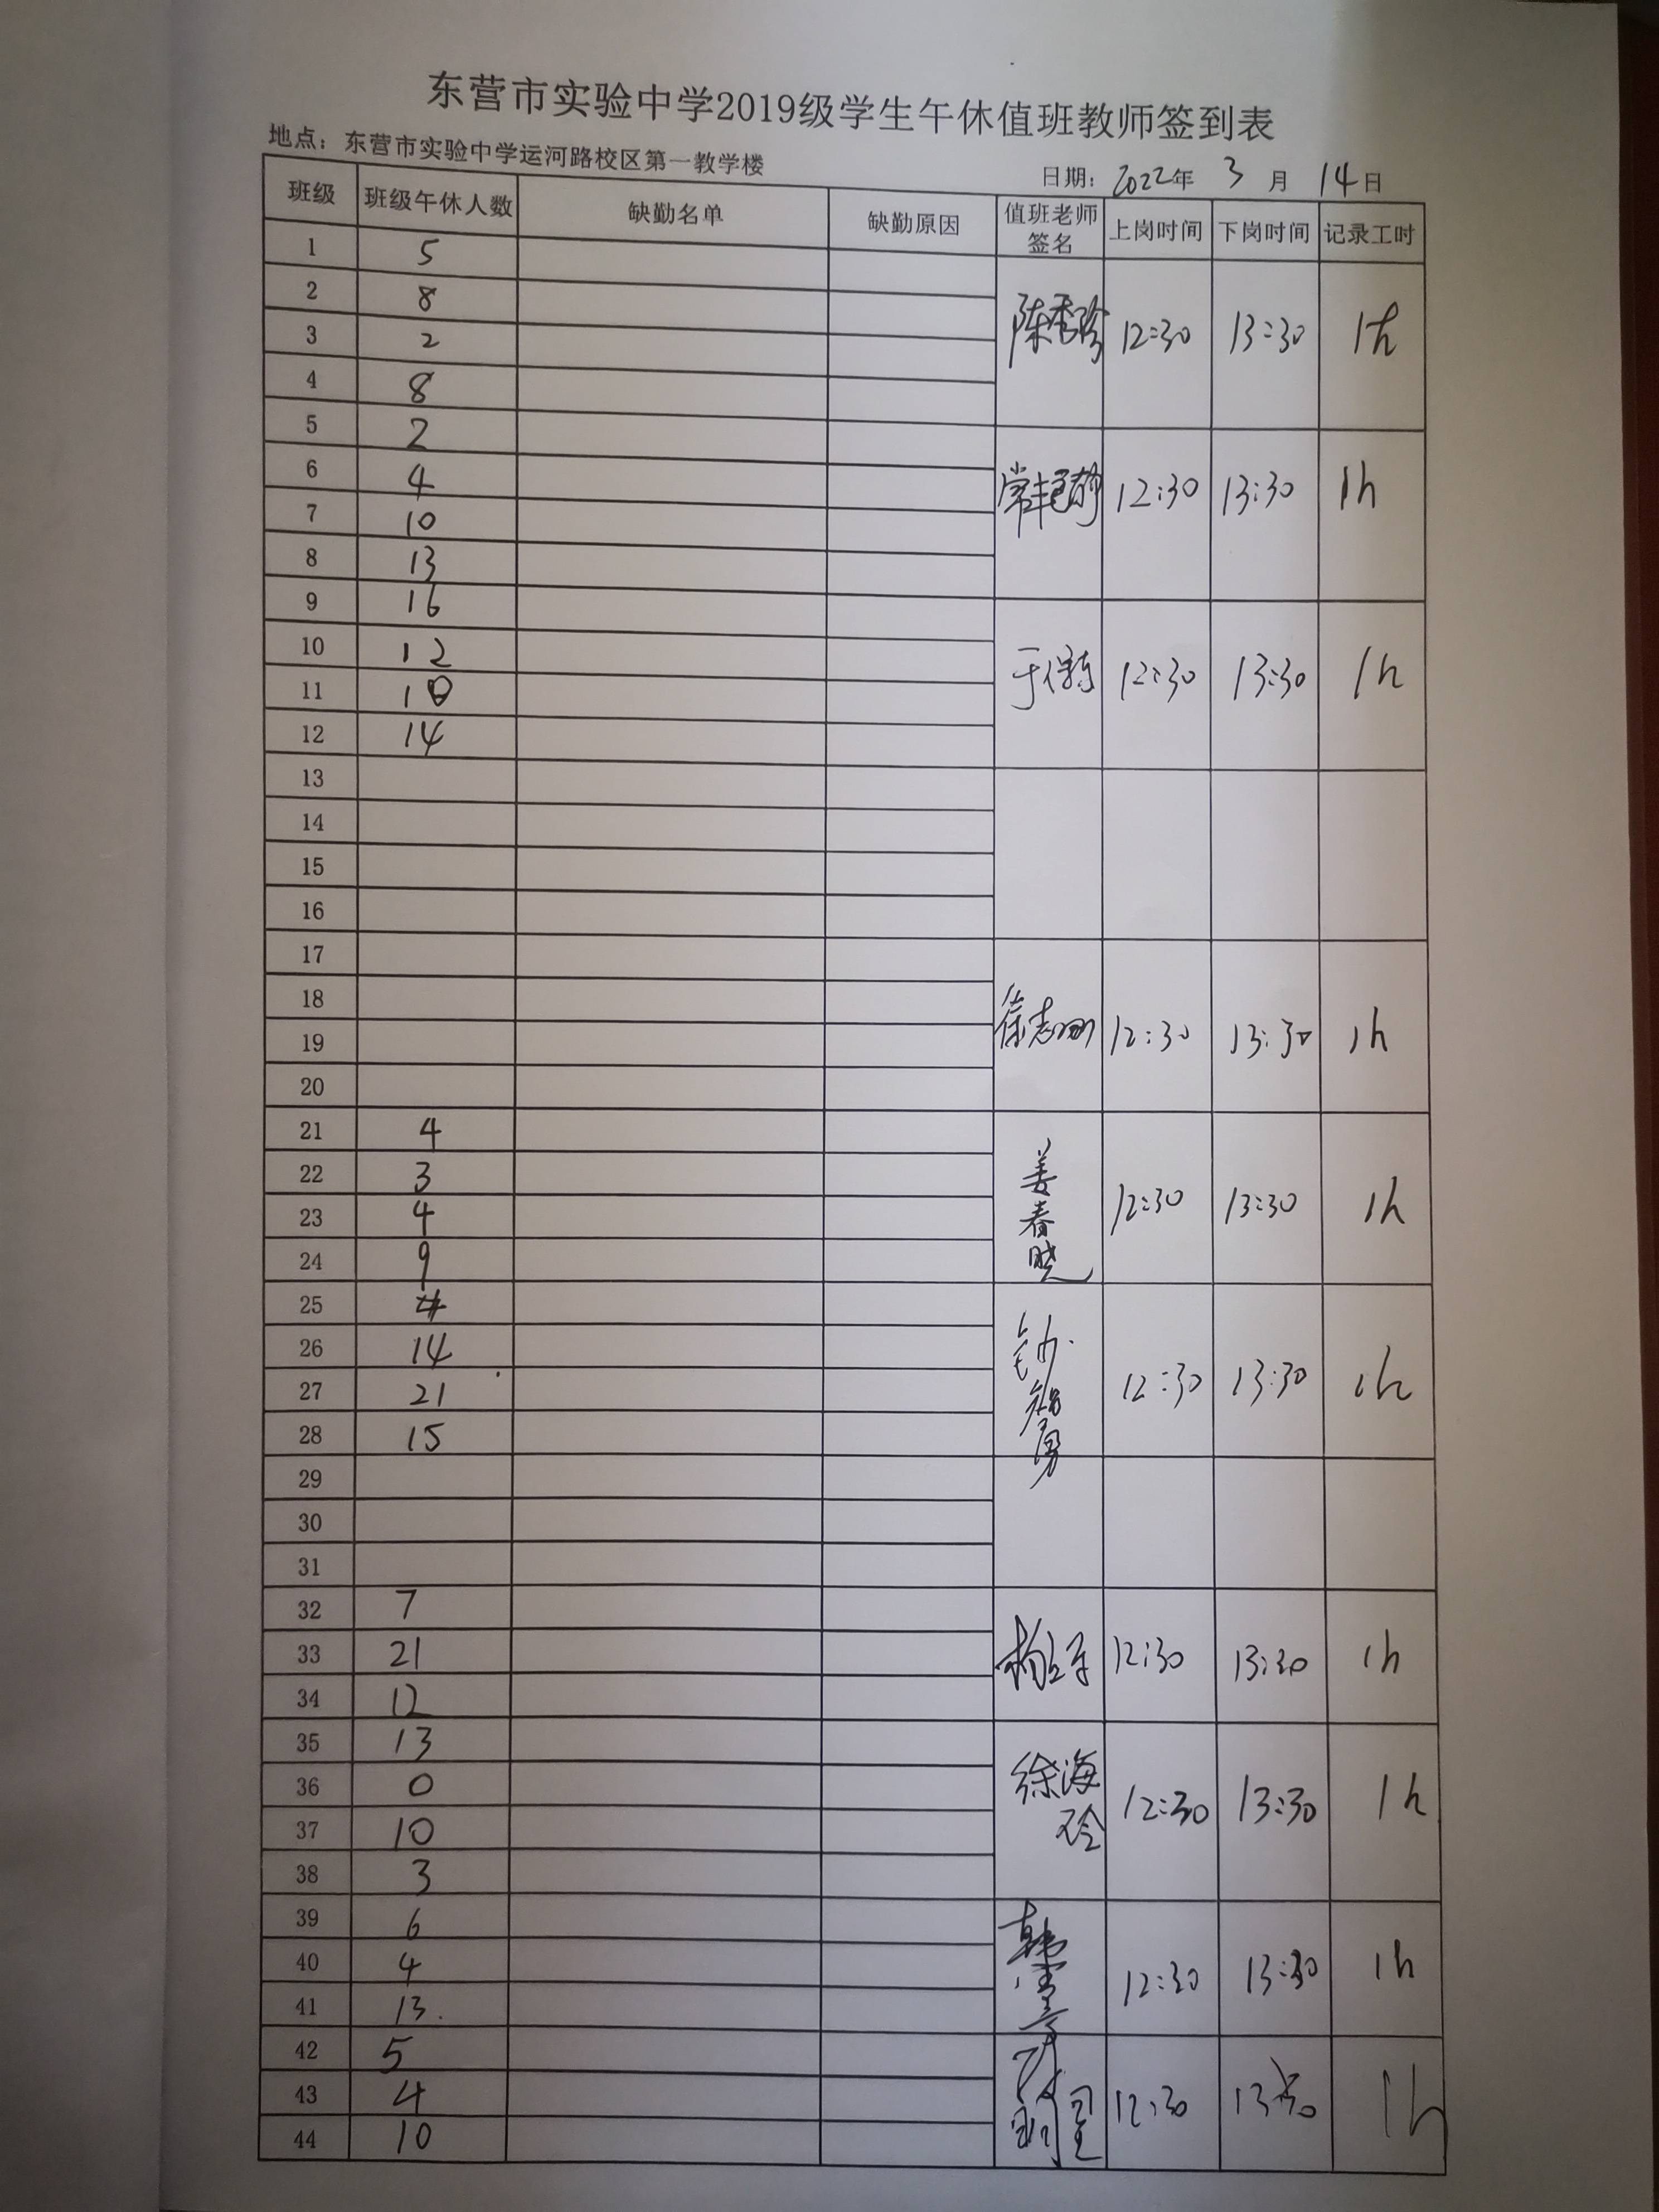 东营市实验中学2019级学生午休值班教师签到表
地点：东营市实验中学运河路校区第一教学楼
日期：2022年 3 月 14日
班级 班级午休人数 缺勤名单 缺勤原因 值班老师签名 上岗时间 下岗时间 记录工时
1 5
2 8
3 2
4 8
陈秀珍 12:30 13:30 1h
5 2
6 4
7 10
8 13
常 12:30 13:30 1h
9 16
10 12
11 10
12 14
于 12:30 13:30 1h
13
14
15
16
17
18
19
20
徐志 12:30 13:30 1h
21 4
22 3
23 4
24 9
姜春晓 12:30 13:30 1h
25
26 14
27 21
28 15
12:30 13:30 1h
29
30
31
32 7
33 21
34 12
杨 12:30 13:30 1h
35 13
36 0
37 10
38 3
徐海 12:30 13:30 1h
39 6
40 4
41 13.
韩 12:30 13:30 1h
42 5
43 4
44 10
12:30 13:30 1h